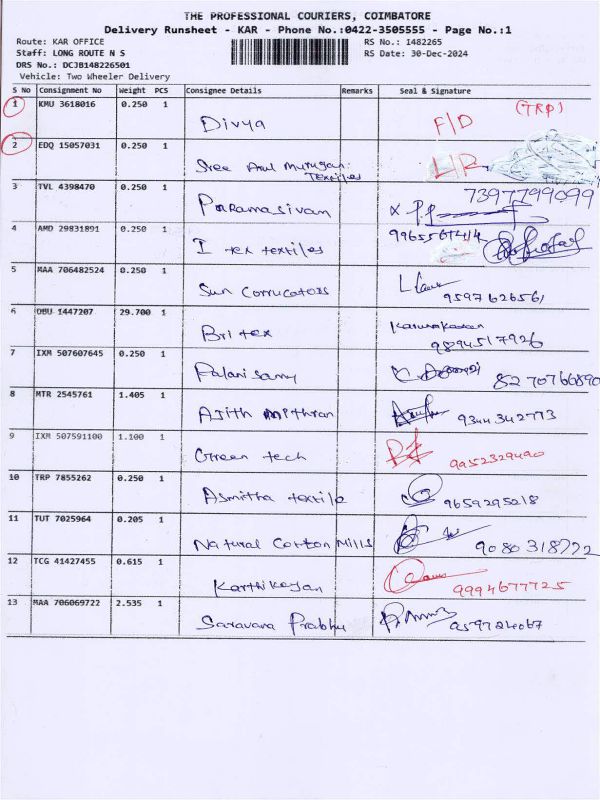 THE PROFESSIONAL COURIERS, COIMBATORE
Delivery Runsheet - KAR - Phone No.:0422-3505555 - Page No.:1
Route: KAR OFFICE RS No.: 1482265
Staff: LONG ROUTE N S RS Date: 30-Dec-2024
DRS No.: DCJB148226501
Vehicle: Two Wheeler Delivery
S No Consignment No Weight PCS Consignee Details Remarks Seal & Signature
1 KMU 3618016 0.250 1 Divya F/D (TRP)
2 EDQ 15057031 0.250 1 Sree Arul Murugan Textiles L/R
3 TVL 4398470 0.250 1 Paramasivan 7397799099
4 AMD 29831891 0.250 1 I tex textiles 9965567414
5 MAA 706482524 0.250 1 Sun Corrucators 9597626561
6 OBU 1447207 29.700 1 Britex Karunakaran 9894517926
7 IXM 507607645 0.250 1 Palanisamy 8270766890
8 MTR 2545761 1.405 1 Ajith Mithran 9344342773
9 IXM 507591100 1.100 1 Green tech 9952329490
10 TRP 7855262 0.250 1 Asmitha textile 9659295218
11 TUT 7025964 0.205 1 Natural Cotton Mills 9080318772
12 TCG 41427455 0.615 1 Karthikeyan 9994677725
13 MAA 706069722 2.535 1 Saravana Prabhu